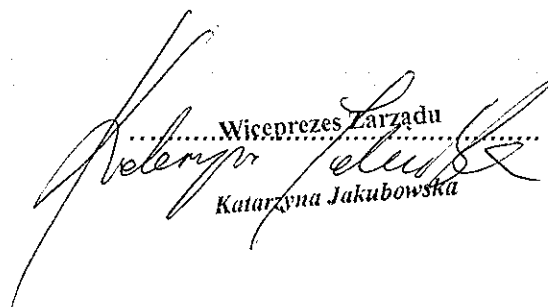 Wiceprezes Zarządu
Katarzyna Jakubowska